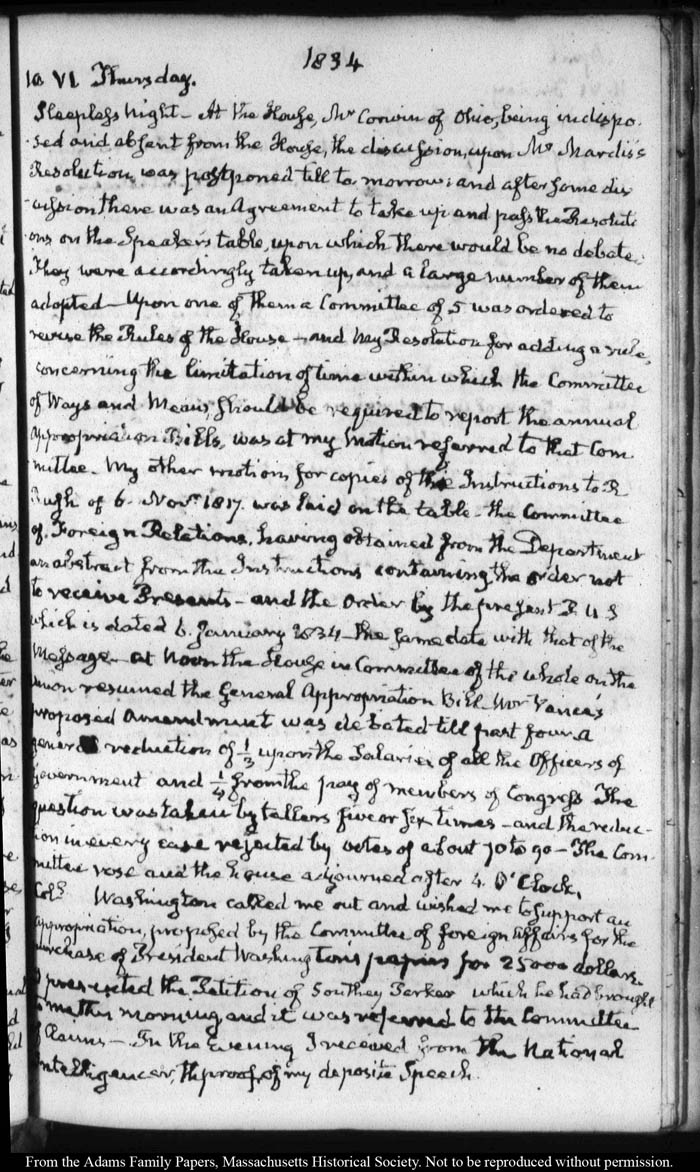 1834
10 VI. Thursday.
Sleepless Night — At the House, Mr Corwin of Ohio, being indispo-
-sed and absent from the House, the discussion, upon Mr Mardis's
Resolution, was postponed till to-morrow; and after some dis
-cussion there was an Agreement to take up and pass the Resoluti
-ons on the Speaker's table, upon which there would be no debate.
They were accordingly taken up, and a large number of them
adopted — Upon one of them a Committee of 5 was ordered to
revise the Rules of the House — and My Resolution for adding a rule,
concerning the limitation of time within which the Committee
of Ways and Means, should be required to report the annual
Appropriation Bills, was at my Motion referred to that Com
mittee. My other motion for copies of the Instructions to R
Rush of 6. Novr 1817. was laid on the table — the Committee
of Foreign Relations, having obtained from the Department
an abstract from the Instructions containing the order not
to receive Presents — and the order by the present P. U S
which is dated 6. January 1834 — the same date with that of the
Message — at Noon the House in Committee of the whole on the
Union resumed the General Appropriation Bill. Mr Vance's
proposed Amendment was debated till past four. a
general reduction of 1/3 upon the Salaries of all the Officers of
Government and 1/4 from the pay of members of Congress The
question was taken by tellers five or six times — and the reduc-
-tion in every case rejected by votes of about 70 to 90 — The Com-
mittee rose and the house adjourned after 4. O'Clock.
Coll. Washington called me out and wished me to support an
appropriation, proposed by the Committee of foreign Affairs for the
purchase of President Washington's papers for 25000 dollars.
I presented the Petition of Southey Parker which he had brought
to me this morning and it was referred to the Committee
of Claims — In the Evening I received from the National
Intelligencer, the proof, of my deposite Speech.
From the Adams Family Papers, Massachusetts Historical Society. Not to be reproduced without permission.